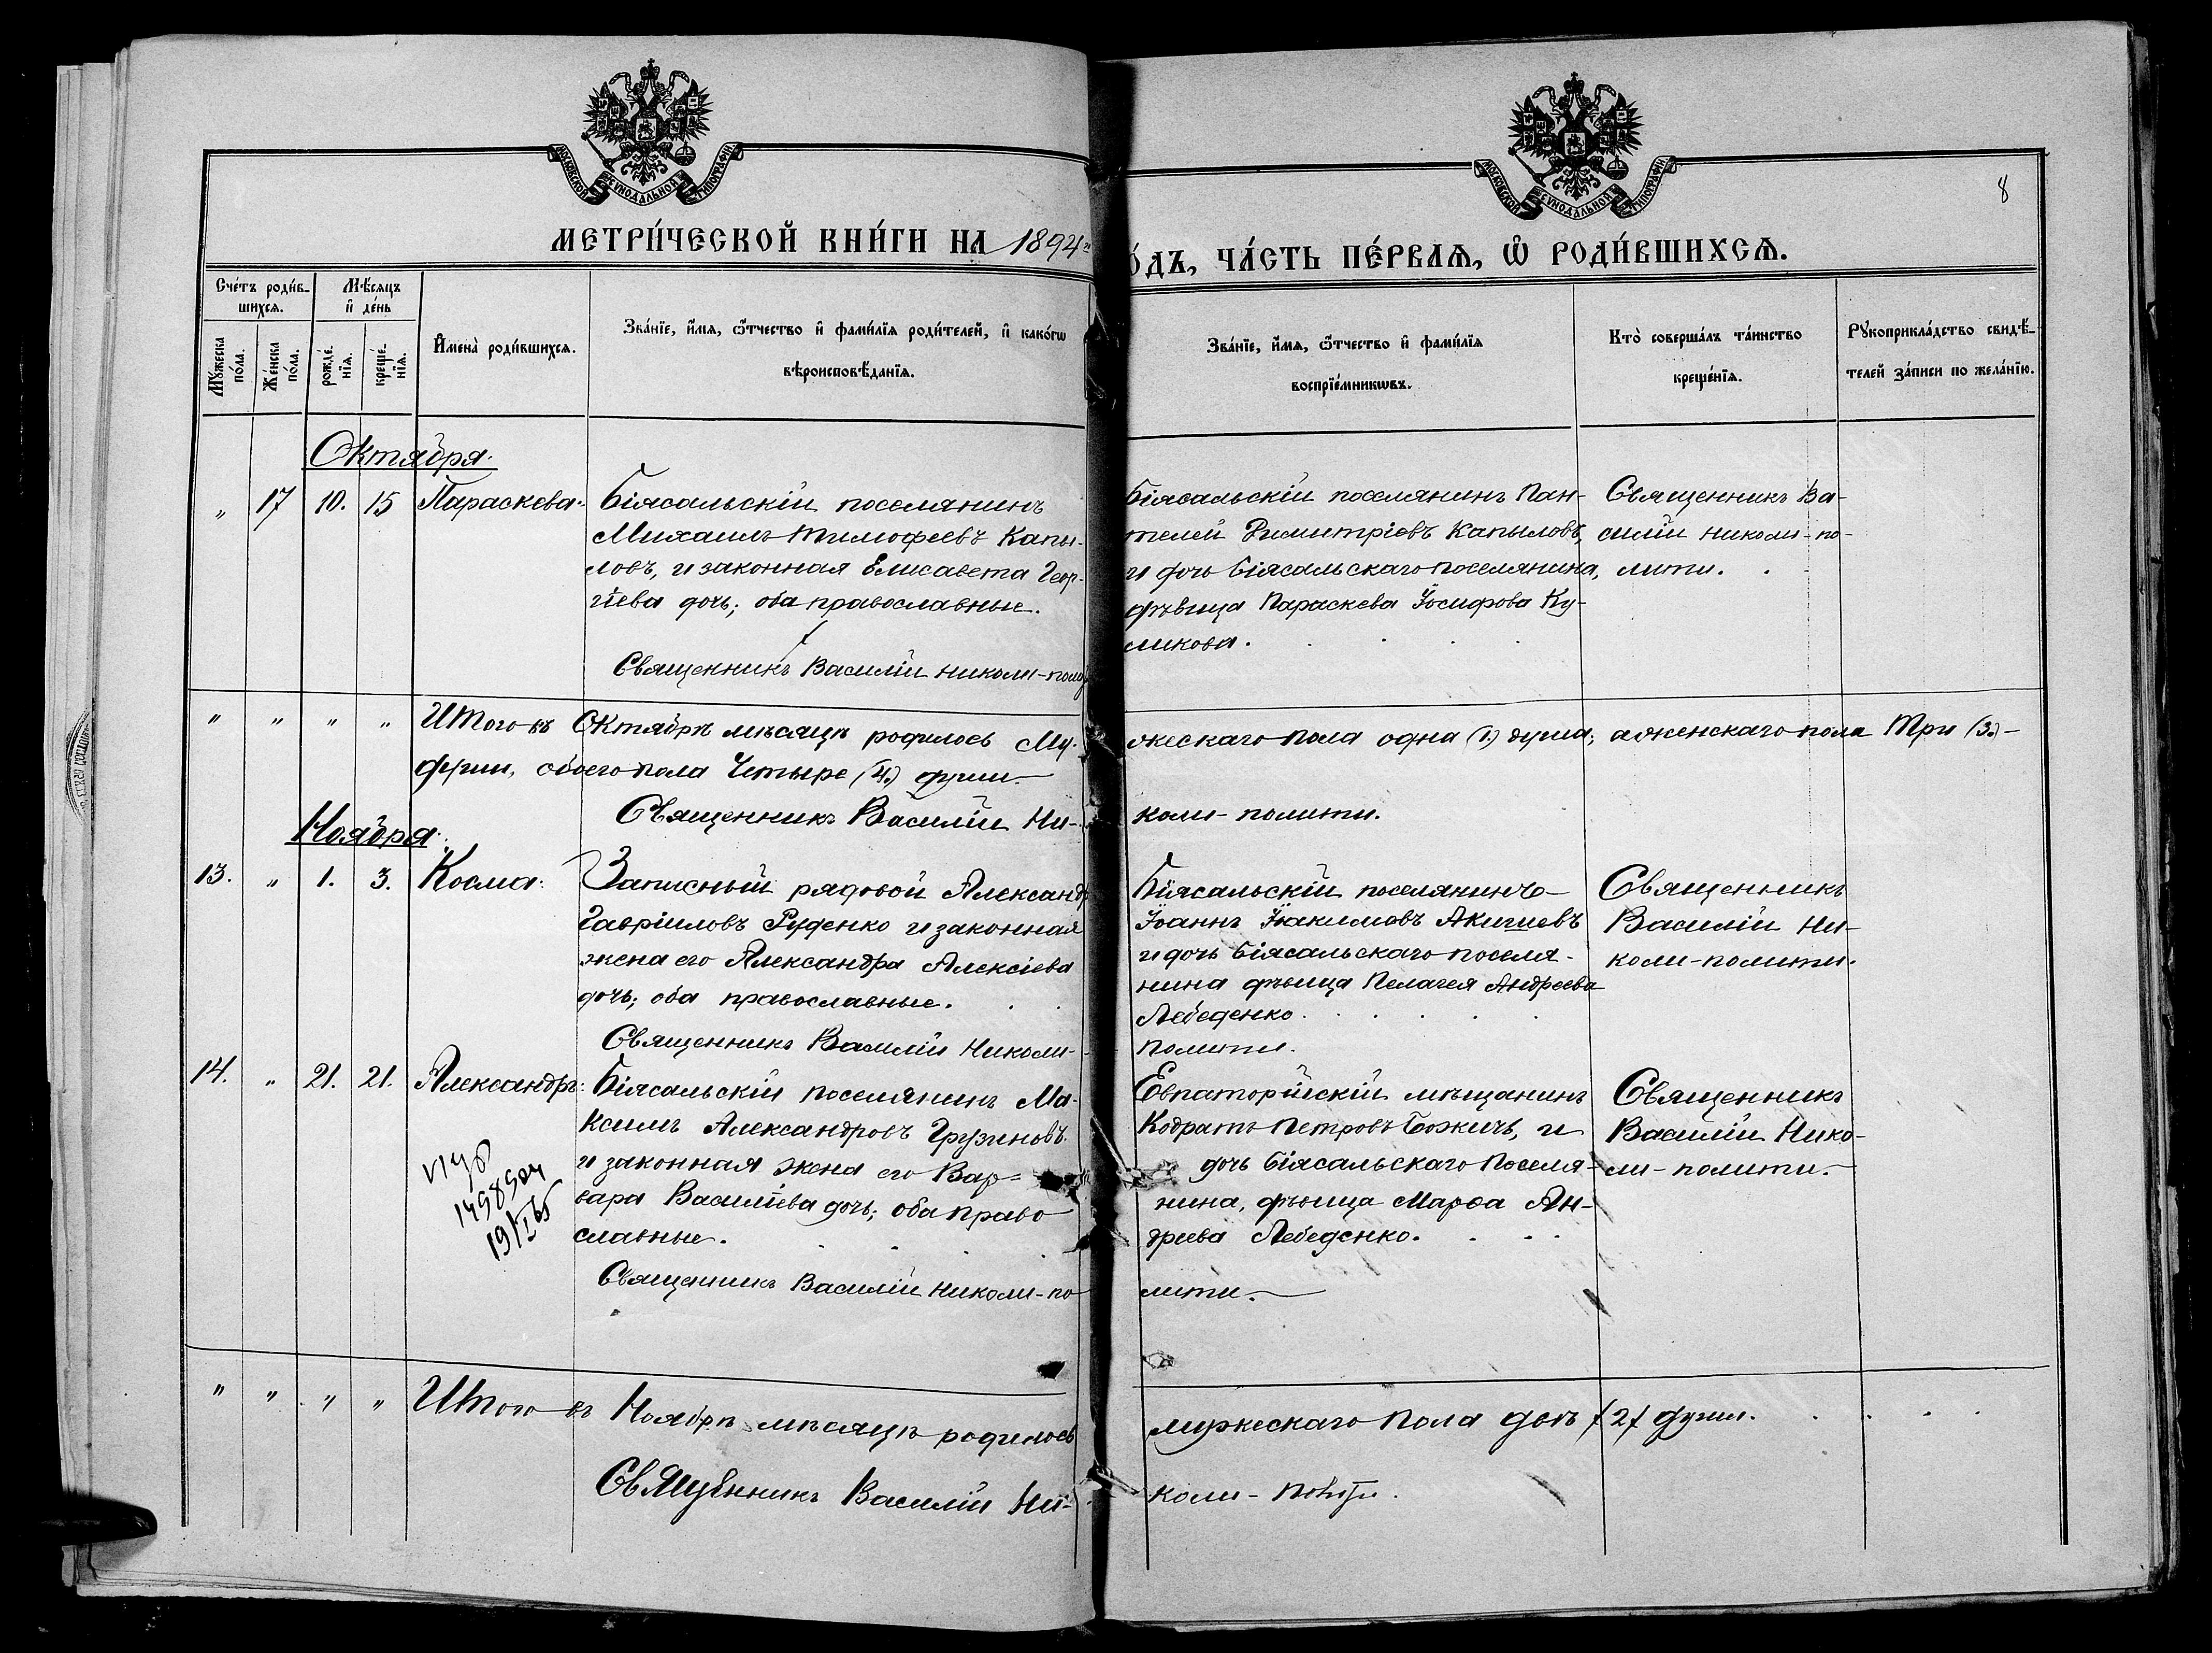 МОСКОВСКОЙ СѴНОДАЛЬНОЙ ТИПОГРАФІИ
МОСКОВСКОЙ СѴНОДАЛЬНОЙ ТИПОГРАФІИ
8
МЕТРИ́ЧЕСКОЙ КНИ́ГИ НА 1894
О́ДЪ, ЧА́СТЬ ПЕ́РВАѦ, Ѡ҆ РОДИ́ВШИХСѦ.
Сче́тъ роди́в-
шихсѧ.
Мѣ́сѧцъ
и҆ де́нь
Мꙋ́жеска
по́ла.
Же́нска
по́ла.
рожде́-
нїѧ.
креще́-
нїѧ.
И҆мена̀ роди́вшихсѧ.
Зва́нїе, и҆́мѧ, ѻ҆́тчество и҆ фами́лїѧ роди́телей, и҆ како́гѡ
вѣроисповѣ́данїѧ.
Зва́нїе, и҆́мѧ, ѻ҆́тчество и҆ фами́лїѧ
воспрїе́мникѡвъ.
Кто̀ соверша́лъ та́инство
креще́нїѧ.
Рꙋкоприкла́дство свидѣ́-
телей за́писи по жела́нїю.
Октября.
" 17 10. 15 Параскева. Біясальскій поселянинъ
Михаилъ Тимофеевъ Капы-
ловъ, и законная Елисавета Геор-
гіева дочь; оба православные.
Священникъ Василій Николи-поли
Біясальскій поселянинъ Пан-
телей Димитріевъ Капыловъ,
и дочь Біясальскаго поселянина,
дѣвица Параскева Іосифова Ку-
ликова.
Священникъ Ва-
силій Николи-по-
лити.
" " " " Итого въ Октябрѣ мѣсяцѣ родилось Му-
жескаго пола одна (1.) душа; а женскаго пола Три (3.)
души, обоего пола Четыре (4.) души.
Священникъ Василій Ни-
коли-полити.
Ноября.
13. " 1. 3. Косма: Записный рядовой Александръ
Гавріиловъ Руденко и законная
жена его Александра Алексіева
дочь; оба православные.
Священникъ Василій Николи-
Біясальскій поселянинъ
Іоаннъ Іоакимовъ Акишевъ
и дочь Біясальскаго поселя-
нина дѣвица Пелагея Андреева
Лебеденко.
полити.
Священникъ
Василій Ни-
коли-полити.
14. " 21. 21. Александръ: Біясальскій поселянинъ Ма-
ксимъ Александровъ Грузиновъ
и законная жена его Вар-
вара Василіева дочь; оба право
славные.
Священникъ Василій Николи-по
1498504
19/I 65
Евпаторійскій мѣщанинъ
Кодратъ Петровъ Божичъ, и
дочь Біясальскаго Поселя-
нина, дѣвица Марѳа Ан-
дреева Лебеденко.
лити.
Священникъ
Василій Нико-
ли-полити.
" " " " Итого въ Ноябрѣ мѣсяцѣ родилось
мужескаго пола двѣ (2) души.
Священникъ Василій Ни-
коли-полити.